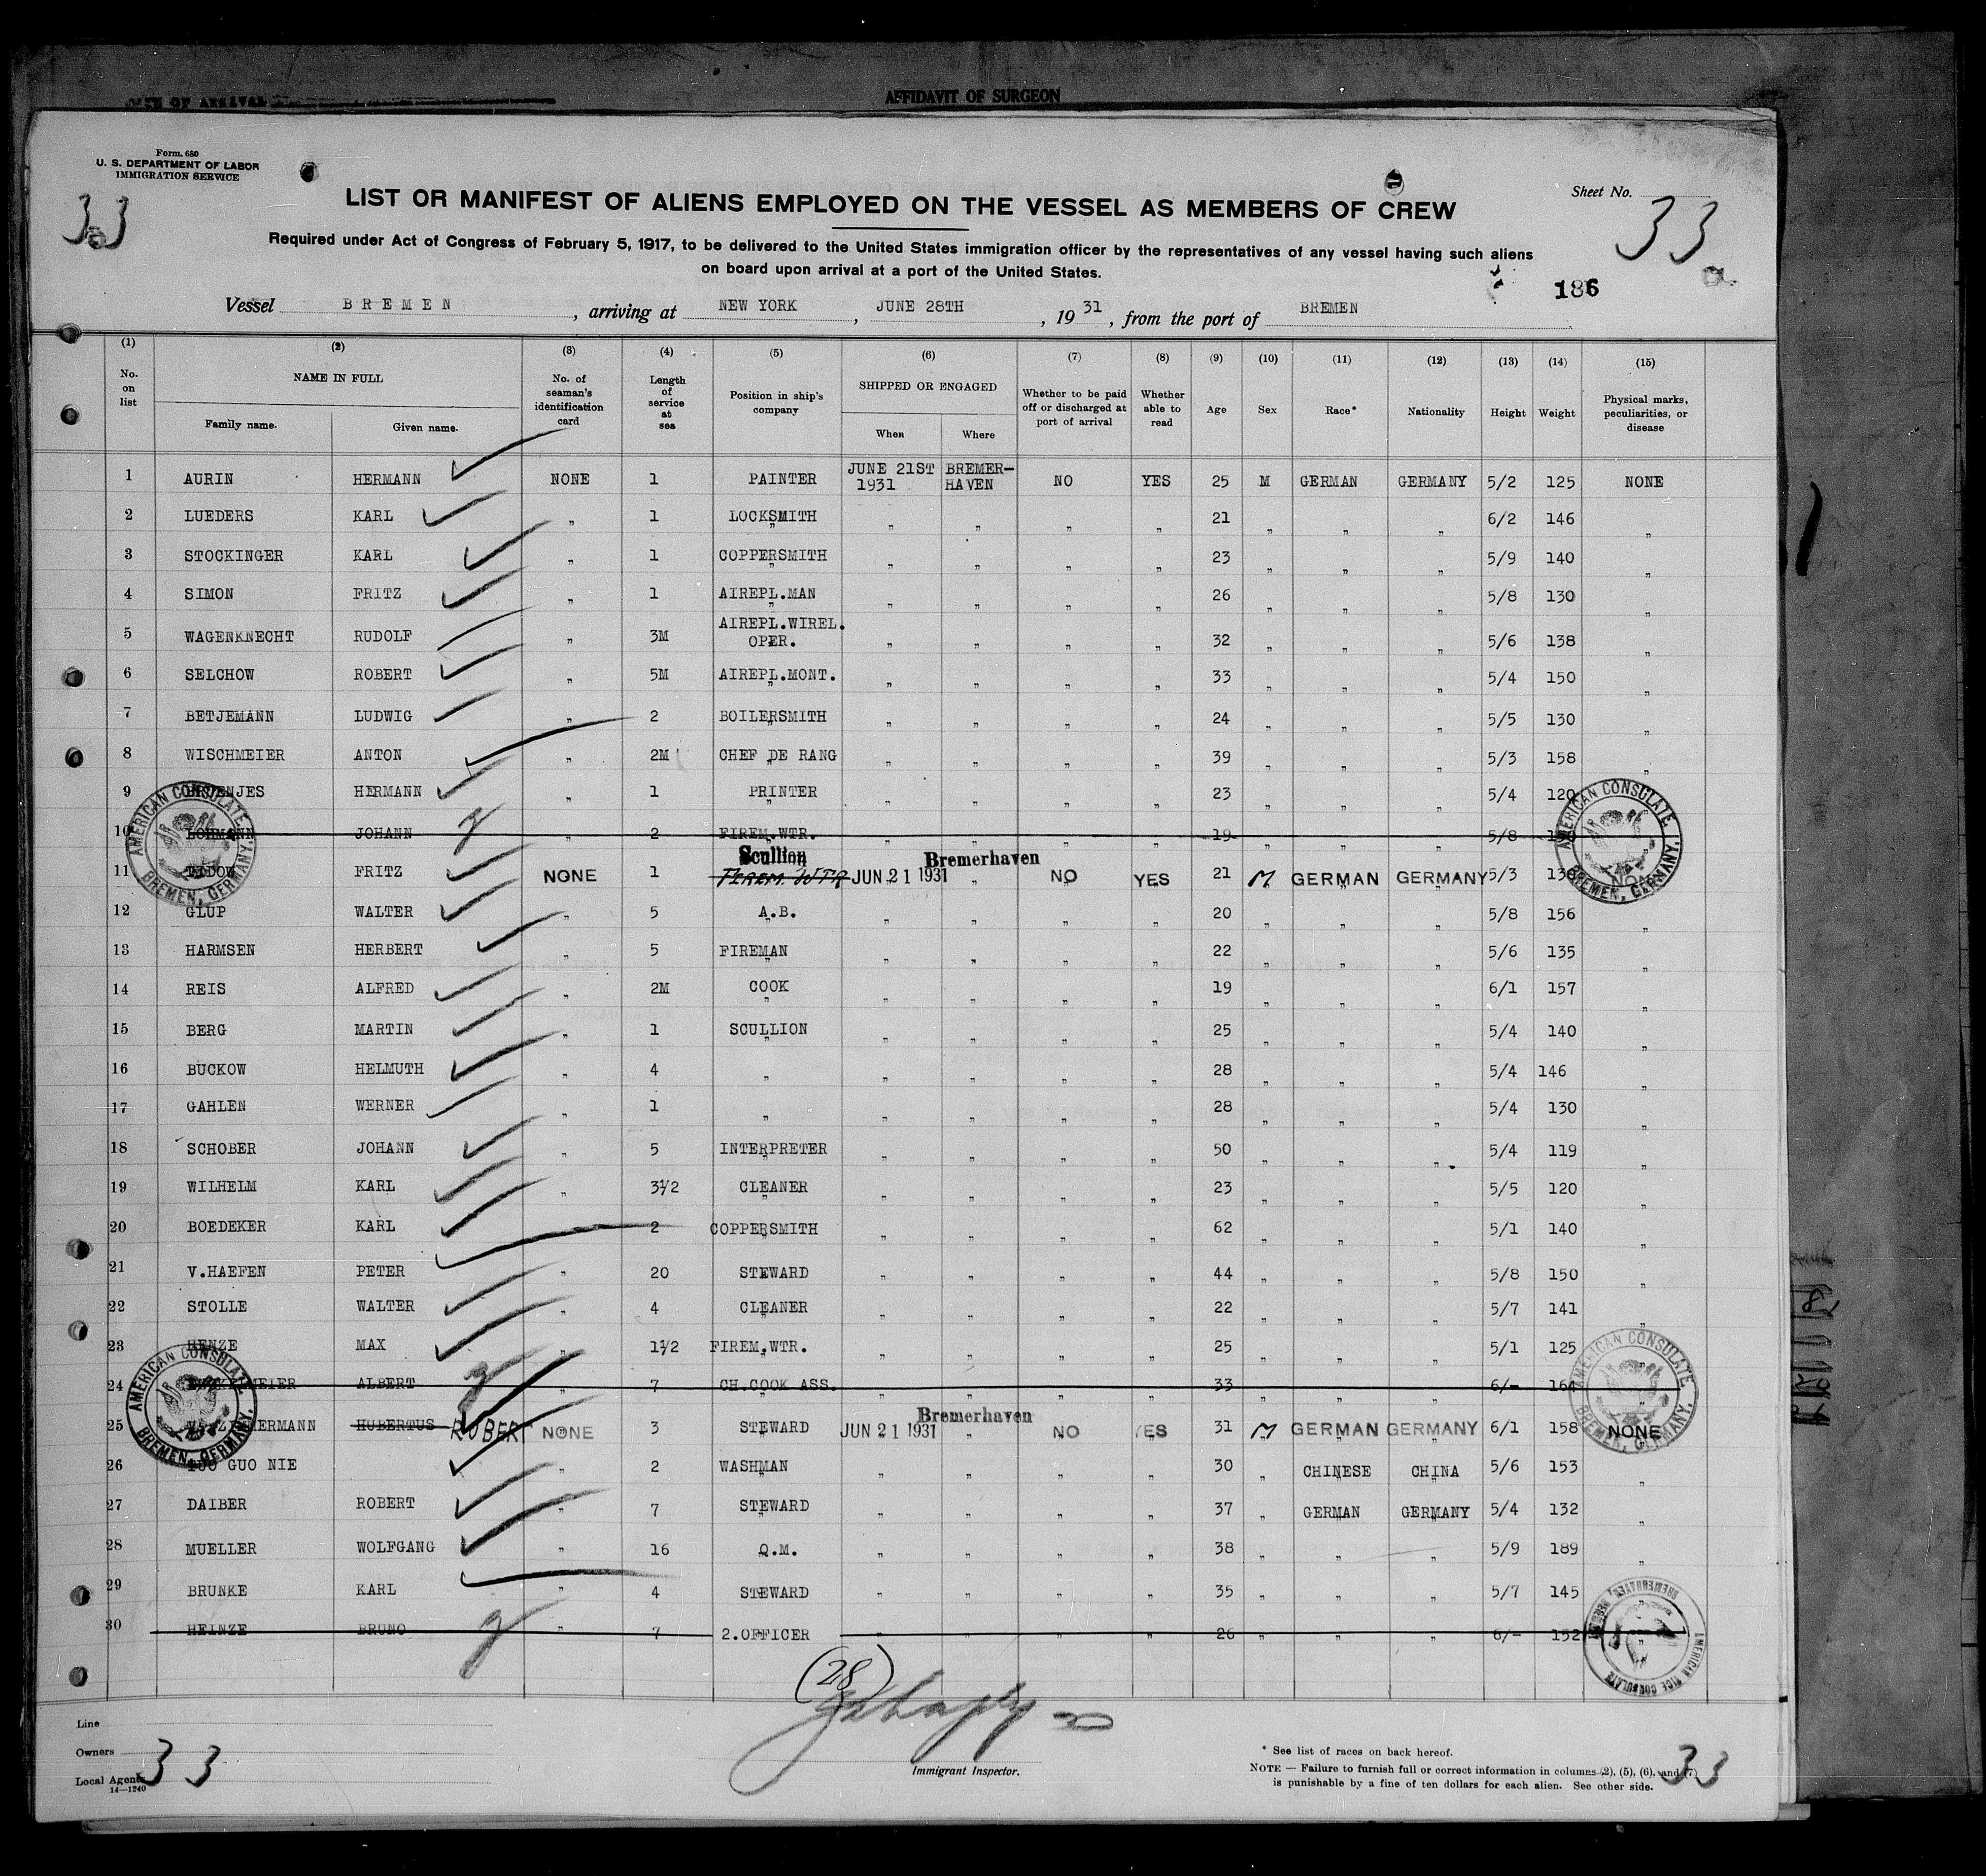 AFFIDAVIT OF SURGEON
Form. 680
U. S. DEPARTMENT OF LABOR
IMMIGRATION SERVICE
33
LIST OR MANIFEST OF ALIENS EMPLOYED ON THE VESSEL AS MEMBERS OF CREW
Sheet No. 33
Required under Act of Congress of February 5, 1917, to be delivered to the United States immigration officer by the representatives of any vessel having such aliens
on board upon arrival at a port of the United States.
186
Vessel BREMEN, arriving at NEW YORK, JUNE 28TH, 1931, from the port of BREMEN
(1) (2) (3) (4) (5) (6) (7) (8) (9) (10) (11) (12) (13) (14) (15)
No. on list NAME IN FULL Family name. Given name. No. of seaman's identification card Length of service at sea Position in ship's company SHIPPED OR ENGAGED When Where Whether to be paid off or discharged at port of arrival Whether able to read Age Sex Race* Nationality Height Weight Physical marks, peculiarities, or disease
1 AURIN HERMANN NONE 1 PAINTER JUNE 21ST 1931 BREMER-HAVEN NO YES 25 M GERMAN GERMANY 5/2 125 NONE
2 LUEDERS KARL " 1 LOCKSMITH " " " " 21 " " " 6/2 146 "
3 STOCKINGER KARL " 1 COPPERSMITH " " " " 23 " " " 5/9 140 "
4 SIMON FRITZ " 1 AIREPL.MAN " " " " 26 " " " 5/8 130 "
5 WAGENKNECHT RUDOLF " 3M AIREPL.WIREL. OPER. " " " " 32 " " " 5/6 138 "
6 SELCHOW ROBERT " 5M AIREPL.MONT. " " " " 33 " " " 5/4 150 "
7 BETJEMANN LUDWIG " 2 BOILERSMITH " " " " 24 " " " 5/5 130 "
8 WISCHMEIER ANTON " 2M CHEF DE RANG " " " " 39 " " " 5/3 158 "
9 HERMANN " 1 PRINTER " " " " 23 " " " 5/4 120
10 LOHMANN JOHANN " 2 FIREM.WTR. 19 5/8
11 FRITZ NONE 1 Scullion FIREM. WTR JUN 21 1931 Bremerhaven NO YES 21 M GERMAN GERMANY 5/3 NONE
12 GLUP WALTER " 5 A.B. " " " " 20 " " " 5/8 156 "
13 HARMSEN HERBERT " 5 FIREMAN " " " " 22 " " " 5/6 135 "
14 REIS ALFRED " 2M COOK " " " " 19 " " " 6/1 157 "
15 BERG MARTIN " 1 SCULLION " " " " 25 " " " 5/4 140 "
16 BUCKOW HELMUTH " 4 " " " " " 28 " " " 5/4 146 "
17 GAHLEN WERNER " 1 " " " " " 28 " " " 5/4 130 "
18 SCHOBER JOHANN " 5 INTERPRETER " " " " 50 " " " 5/4 119 "
19 WILHELM KARL " 3 1/2 CLEANER " " " " 23 " " " 5/5 120 "
20 BOEDEKER KARL 2 COPPERSMITH " " " " 62 " " " 5/1 140 "
21 V.HAEFEN PETER " 20 STEWARD " " " " 44 " " " 5/8 150 "
22 STOLLE WALTER " 4 CLEANER " " " " 22 " " " 5/7 141 "
23 HENZE MAX " 1 1/2 FIREM.WTR. " " " " 25 " " " 5/1 125 "
24 ALBERT " 7 CH.COOK ASS. " " " " 33 " " " 6/- 164
25 HUBERTUS ROBERT NONE 3 STEWARD JUN 21 1931 Bremerhaven NO YES 31 M GERMAN GERMANY 6/1 158 NONE
26 GUO NIE " 2 WASHMAN " " " " 30 " CHINESE CHINA 5/6 153 "
27 DAIBER ROBERT " 7 STEWARD " " " " 37 " GERMAN GERMANY 5/4 132 "
28 MUELLER WOLFGANG " 16 Q.M. " " " " 38 " " " 5/9 189 "
29 BRUNKE KARL " 4 STEWARD " " " " 35 " " " 5/7 145 "
30 HEINZE BRUNO " 7 2.OFFICER " " " " 26 " " " 6/- 152 "
AMERICAN CONSULATE, BREMEN, GERMANY.
AMERICAN CONSULATE, BREMEN, GERMANY.
AMERICAN CONSULATE, BREMEN, GERMANY.
AMERICAN CONSULATE, BREMEN, GERMANY.
AMERICAN VICE CONSULATE
(28)
Line
Owners
Local Agents
14—1240
33
Immigrant Inspector.
* See list of races on back hereof.
NOTE — Failure to furnish full or correct information in columns (2), (5), (6), and (7)
is punishable by a fine of ten dollars for each alien. See other side.
33